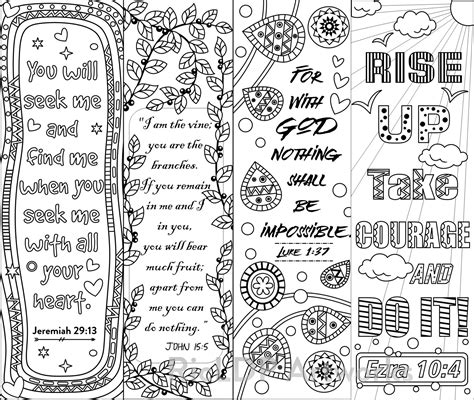 You will
seek me
and
find me
when you
seek me
with all
your
heart.
Jeremiah 29:13
"I am the vine;
you are the
branches.
If you remain
in me and I
in you,
you will bear
much fruit;
apart from
me you can
do nothing."
JOHN 15:5
FOR
WITH
GOD
NOTHING
SHALL
BE
IMPOSSIBLE.
LUKE 1:37
RISE
UP
Take
COURAGE
AND
DO IT!
Ezra 10:4